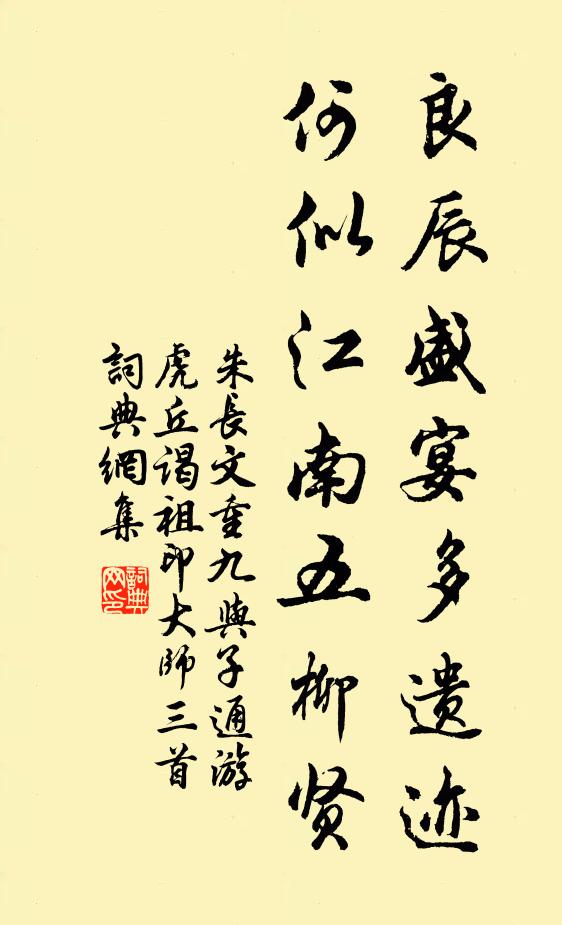 良辰盛宴多遗迹
何似江南五柳贤
朱長文重九與子通游
虎丘謁祖印大師三首
詞典網集
詞典网印